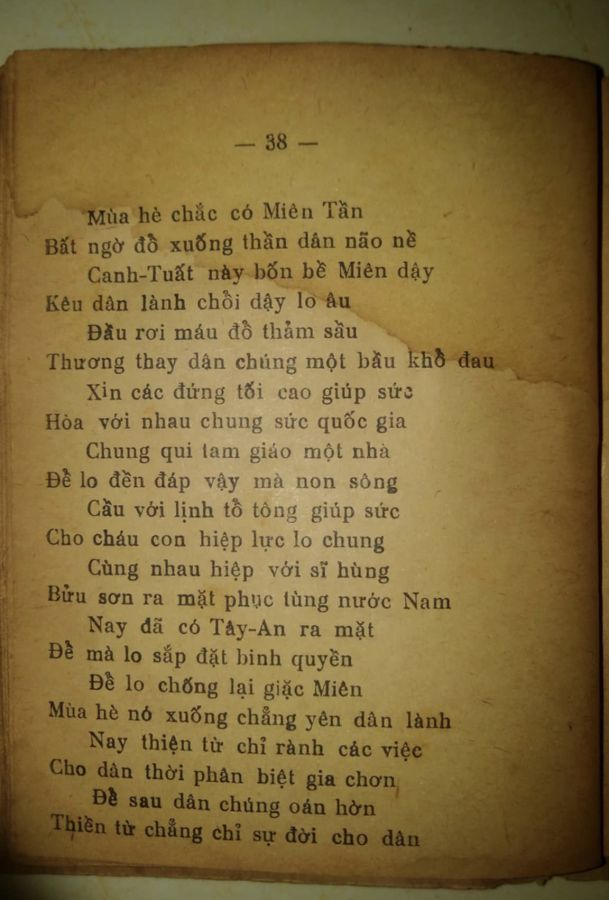 — 38 —
Mùa hè chắc có Miên Tần
Bất ngờ đổ xuống thần dân não nề
Canh-Tuất này bốn bề Miên dậy
Kêu dân lành chổi dậy lo âu
Đầu rơi máu đổ thảm sầu
Thương thay dân chúng một bầu khổ đau
Xin các đứng tối cao giúp sức
Hòa với nhau chung sức quốc gia
Chung qui tam giáo một nhà
Để lo đền đáp vậy mà non sông
Cầu với linh tổ tông giúp sức
Cho cháu con hiệp lực lo chung
Cùng nhau hiệp với sĩ hùng
Bửu sơn ra mặt phục tùng nước Nam
Nay đã có Tây-An ra mặt
Để mà lo sắp đặt binh quyền
Để lo chống lại giặc Miên
Mùa hè nó xuống chẳng yên dân lành
Nay thiện từ chỉ rành các việc
Cho dân thời phân biệt gia chơn
Để sau dân chúng oán hờn
Thiền từ chẳng chỉ sự đời cho dân